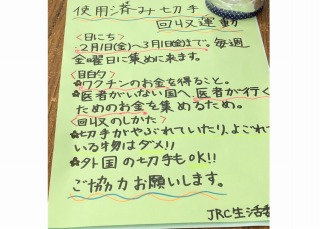 使用済み切手
回収運動
<日にち>
2月1日(金)~3月1日(金)まで。毎週
金曜日に集めに来ます。
<目的>
☆ワクチンのお金を得ること。
☆医者がいない国へ、医者が行く
ためのお金を集めるため。
<回収のしかた>
☆切手がやぶれていたり、よごれて
いる物はダメ!!
☆外国の切手もOK!!
ご協力お願いします。
JRC生活委